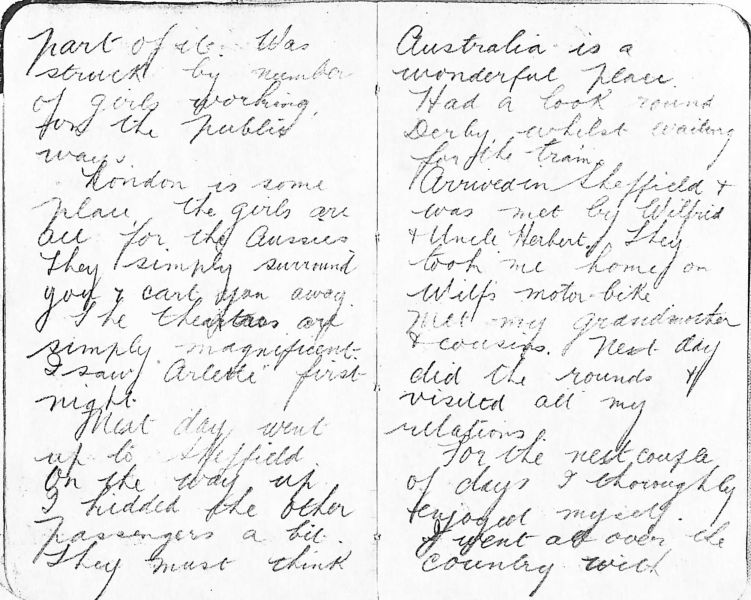 part of it. Was
struck by number
of girls working
for the public
ways.
London is some
place, the girls are
all for the Aussies
They simply surround
you & cart you away.
The theatres are
simply magnificent.
I saw "Arlette" first
night.
Next day went
up to Sheffield
On the way up
I kidded the other
passengers a bit.
They must think
Australia is a
wonderful place.
Had a look round
Derby whilst waiting
for the train.
Arrived in Sheffield &
was met by Wilfrid
& Uncle Herbert. They
took me home on
Wilfs motor-bike
Met my grandmother
& cousins. Next day
did the rounds &
visited all my
relations.
For the next couple
of days I thoroughly
enjoyed myself.
I went all over the
country with